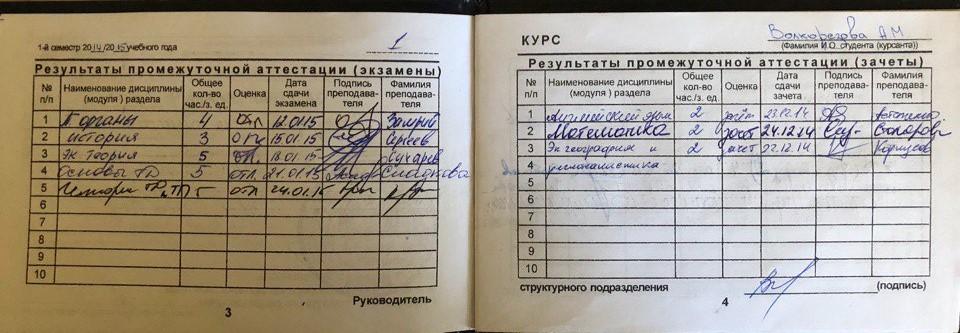 1-й семестр 2014/2015 учебного года 1
Результаты промежуточной аттестации (экзамены)
№ п/п Наименование дисциплины (модуля) раздела Общее кол-во час./з. ед. Оценка Дата сдачи экзамена Подпись преподава-теля Фамилия преподава-теля
1 органы 4 отл 12.01.15
2 история 3 отл 15.01.15 Сергеев
3 Эк теория 5 отл. 18.01.15 Сухарев
4 Основы ТД 5 отл. 21.01.15
5 отл 24.01.15
6
7
8
9
10
Руководитель
3
КУРС А М
(Фамилия И.О. студента (курсанта))
Результаты промежуточной аттестации (зачеты)
№ п/п Наименование дисциплины (модуля) раздела Общее кол-во час./з. ед Оценка Дата сдачи зачета Подпись преподава-теля Фамилия преподава-теля
1 Английский язык 2 зачёт 23.12.14
2 Математика 2 зачёт 24.12.14
3 Эк география и 2 зачет 22.12.14
4 регионалистика
5
6
7
8
9
10
структурного подразделения (подпись)
4